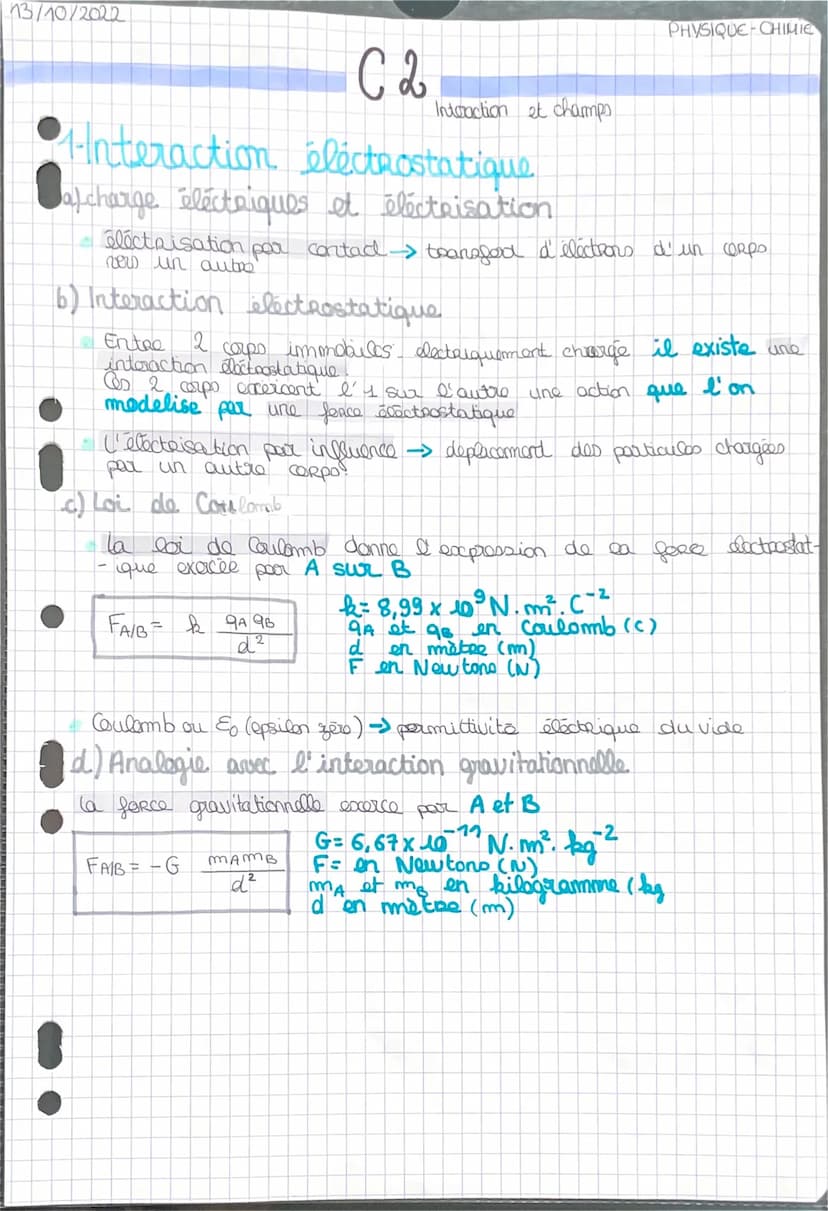 13/10/2022
PHYSIQUE-CHIMIE
C2
Interaction et champs
1-Interaction éléctrostatique
a) charge éléctriques et éléctrisation
éléctrisation par contact → transfert d'éléctrons d'un corps
vers un autre
b) Interaction éléctrostatique
Entre 2 corps immobiles electriquement chargé il existe une
interaction éléctrostatique.
Ces 2 corps exercent l'1 sur l'autre une action que l'on
modelise par une force éléctrostatique
L'éléctrisation par influence → deplacement des particules chargées
par un autre corps.
c) Loi de Coulomb
La loi de Coulomb donne l'expression de la force électrostat-
-ique exercée par A sur B
F_A/B = k q_A q_B / d²
k = 8,99 × 10⁹ N. m². C⁻²
q_A et q_B en Coulomb (C)
d en mètre (m)
F en Newtons (N)
Coulomb ou ε₀ (epsilon zéro) → permittivité éléctrique du vide
d) Analogie avec l'interaction gravitationnelle
La force gravitationnelle exerce par A et B
F_A/B = -G m_A m_B / d²
G = 6,67 × 10⁻¹¹ N. m². kg⁻²
F = en Newtons (N)
m_A et m_B en kilogramme (kg
d en mètre (m)